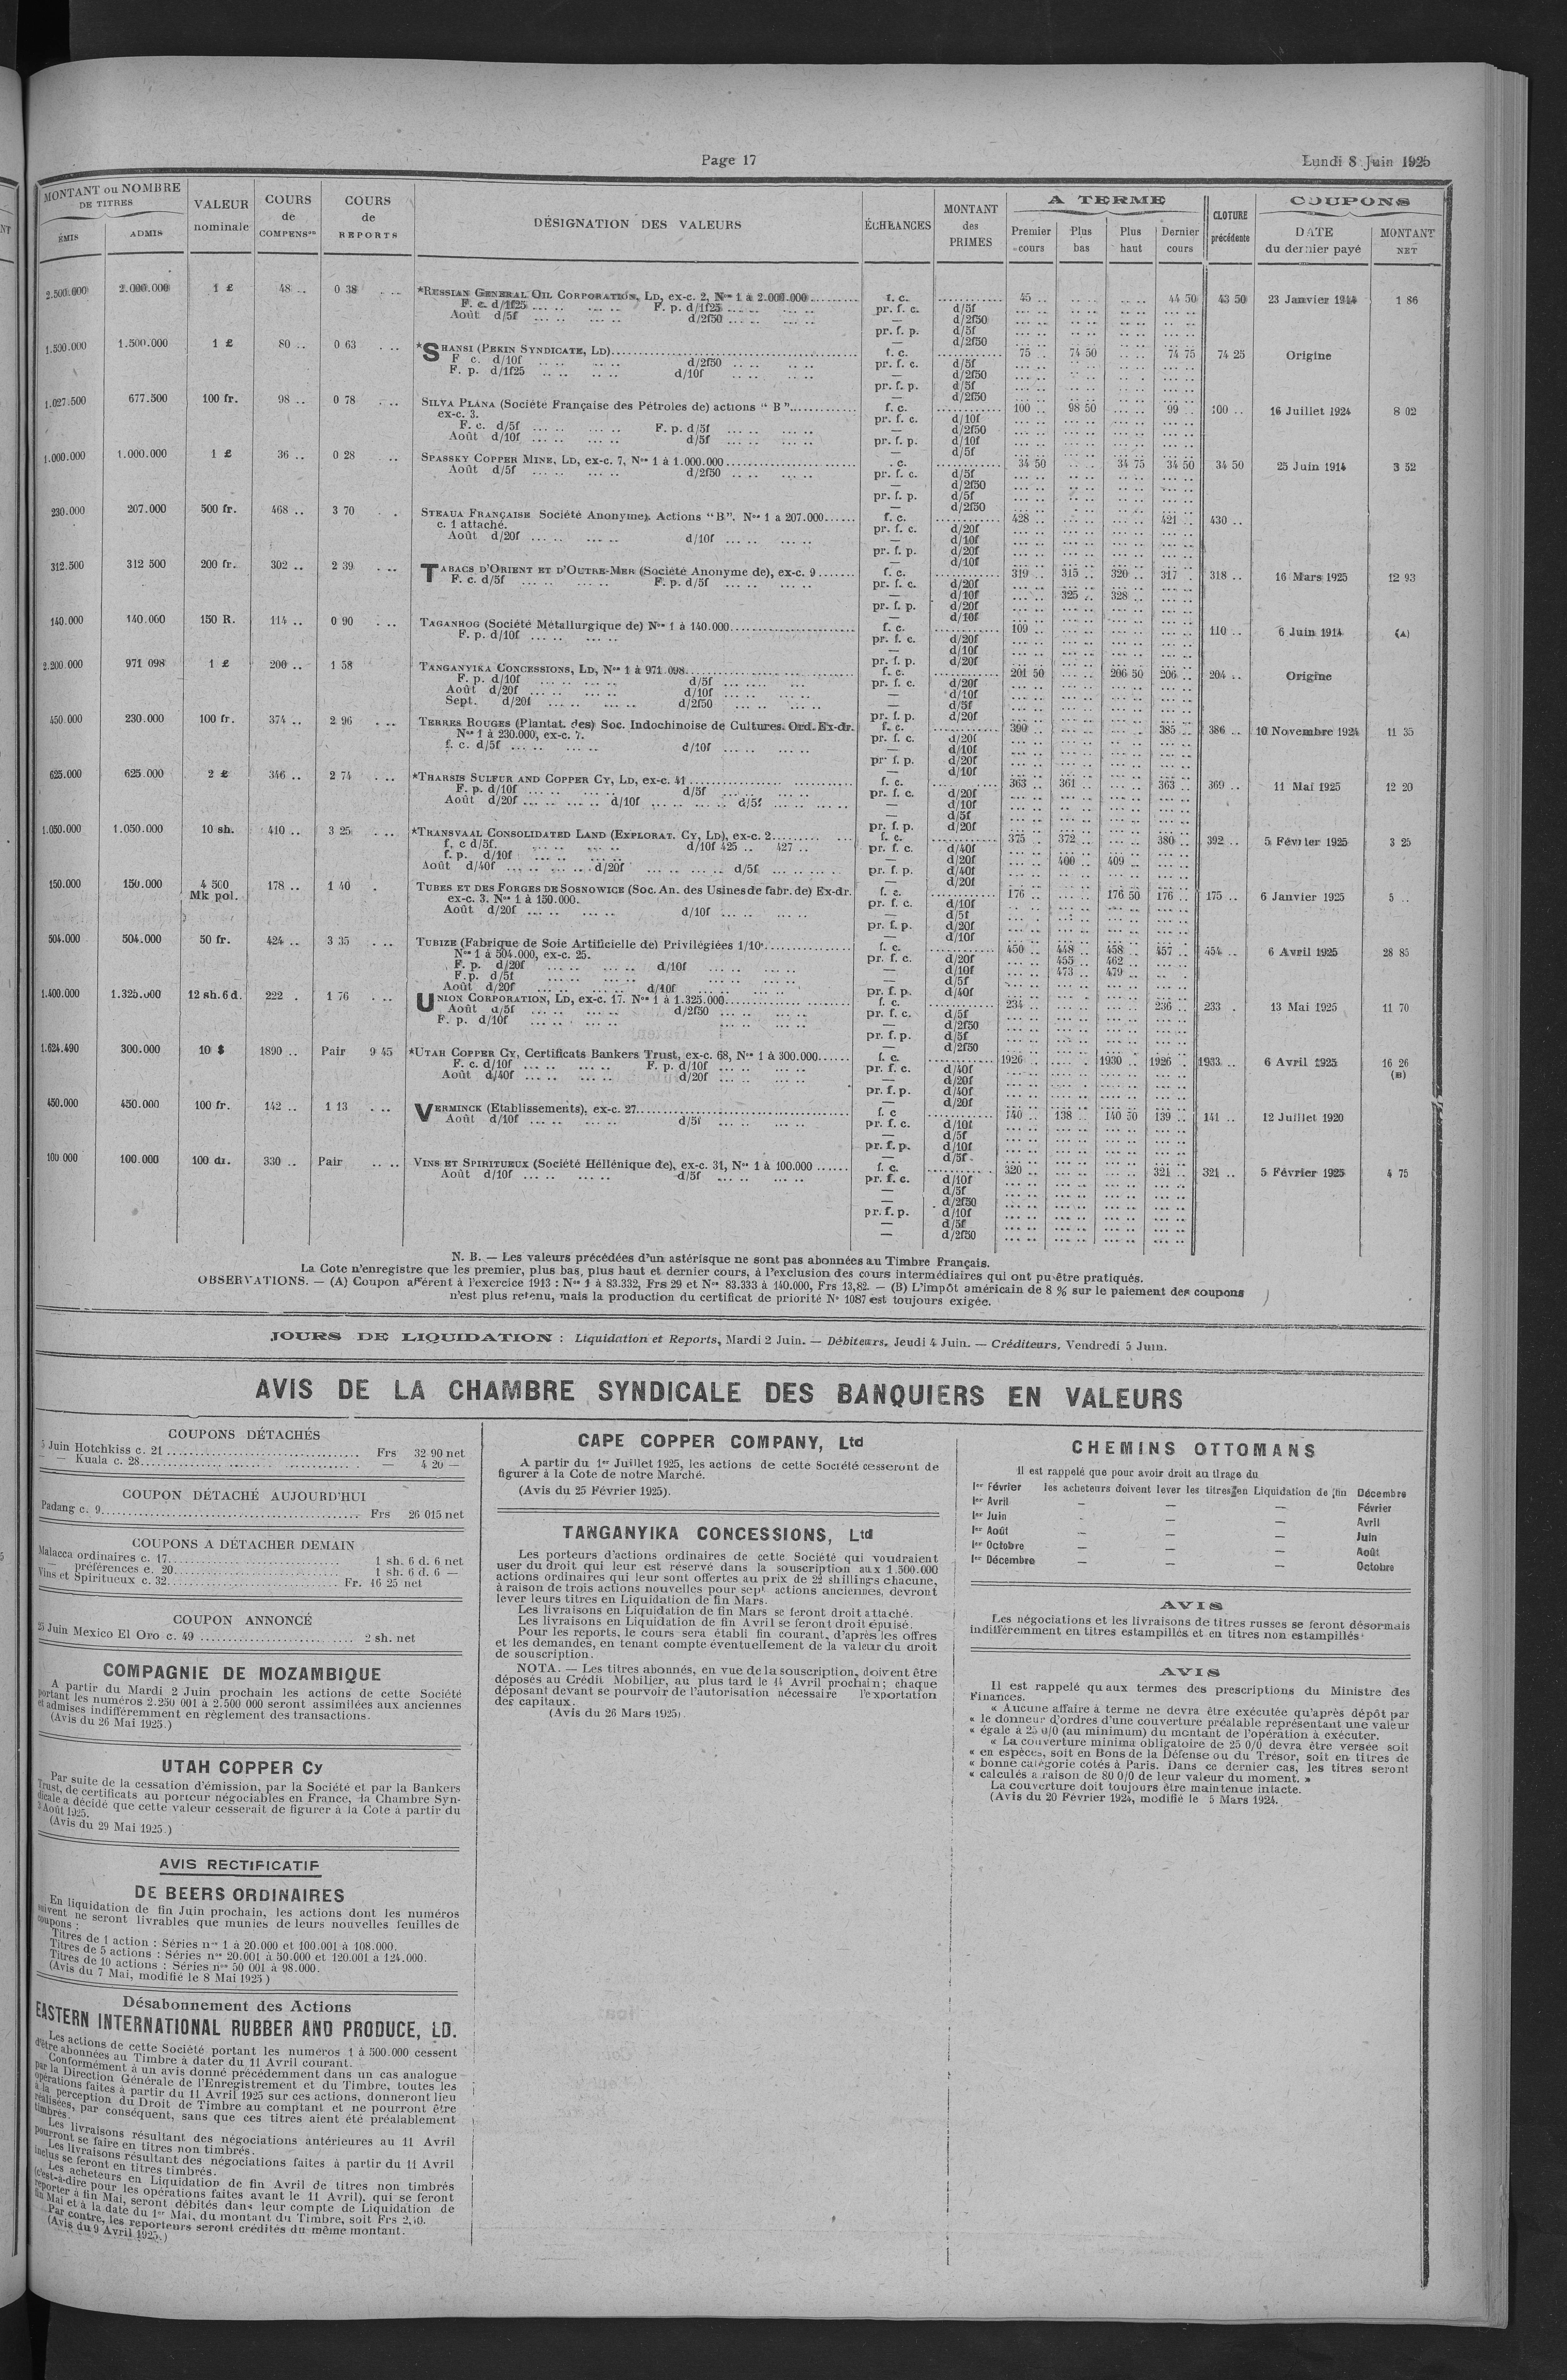 Page 17
Lundi 8 Juin 1925
MONTANT ou NOMBRE DE TITRES
ÉMIS
ADMIS
VALEUR nominale
COURS de COMPENSon
COURS de REPORTS
DÉSIGNATION DES VALEURS
ÉCHEANCES
MONTANT des PRIMES
A TERME
Premier cours
Plus bas
Plus haut
Dernier cours
CLOTURE précédente
COUPONS
DATE du dernier payé
MONTANT NET
2.500.000 2.000.000 1 £ 48 .. 0 38 .. .. *RUSSIAN GENERAL OIL CORPORATION, LD, ex-c. 2, Nos 1 à 2.000.000 f. c. 45 .. 44 50 43 50 23 Janvier 1914 1 86
F. c. d/1f25 F. p. d/1f25 pr. f. c. d/5f
Août d/5f d/2f50 — d/2f50
pr. f. p. d/5f
— d/2f50
1.500.000 1.500.000 1 £ 80 .. 0 63 .. .. *SHANSI (PEKIN SYNDICATE, LD) f. c. 75 .. 74 50 74 75 74 25 Origine
F c. d/10f d/2f50 pr. f. c. d/5f
F. p. d/1f25 d/10f — d/2f50
pr. f. p. d/5f
— d/2f50
1.027.500 677.500 100 fr. 98 .. 0 78 .. .. SILVA PLANA (Société Française des Pétroles de) actions “ B ” f. c. 100 .. 98 50 99 .. 100 .. 16 Juillet 1924 8 02
ex-c. 3. pr. f. c. d/10f
F. c. d/5f F. p. d/5f — d/2f50
Août d/10f d/5f pr. f. p. d/10f
— d/5f
1.000.000 1.000.000 1 £ 36 .. 0 28 .. SPASSKY COPPER MINE, LD, ex-c. 7, Nos 1 à 1.000.000 . c. 34 50 34 75 34 50 34 50 25 Juin 1914 3 52
Août d/5f d/2f50 pr. f. c. d/5f
— d/2f50
pr. f. p. d/5f
— d/2f50
230.000 207.000 500 fr. 468 .. 3 70 . . STEAUA FRANÇAISE Société Anonyme). Actions “B”. Nos 1 a 207.000 f. c. 428 .. 421 .. 430 ..
c. 1 attaché. pr. f. c. d/20f
Août d/20f d/10f — d/10f
pr. f. p. d/20f
— d/10f
312.500 312 500 200 fr. 302 .. 2 39 . .. TABACS D'ORIENT ET D'OUTRE-MER (Société Anonyme de), ex-c. 9 f. c. 319 .. 315 .. 320 .. 317 . 318 .. 16 Mars 1925 12 93
F. c. d/5f F. p. d/5f pr. f. c. d/20f
— d/10f 325 .. 328 ..
pr. f. p. d/20f
— d/10f
140.000 140.000 150 R. 114 .. 0 90 . .. TAGANROG (Société Métallurgique de) Nos 1 à 140.000 f. c. 109 .. 110 .. 6 Juin 1914 (A)
F. p. d/10f pr. f. c. d/20f
— d/10f
pr. f. p. d/20f
2.200.000 971 098 1 £ 200 .. 1 58 TANGANYIKA CONCESSIONS, LD, Nos 1 à 971 098 f. c. 201 50 206 50 206 .. 204 .. Origine
F. p. d/10f d/5f pr. f. c. d/20f
Août d/20f d/10f — d/10f
Sept. d/20f d/2f50 — d/5f
pr. f. p. d/20f
450.000 230.000 100 fr. 374 .. 2 96 . .. TERRES ROUGES (Plantat. des) Soc. Indochinoise de Cultures. Ord. Ex-dr. f. c. 390 .. 385 .. 386 .. 10 Novembre 1924 11 35
Nos 1 à 230.000, ex-c. 7. pr. f. c. d/20f
f. c. d/5f d/10f — d/10f
pr. f. p. d/20f
— d/10f
625.000 625.000 2 £ 346 .. 2 74 . .. *THARSIS SULFUR AND COPPER CY, LD, ex-c. 41 f. c. 363 .. 361 .. 363 .. 369 .. 11 Mai 1925 12 20
F. p. d/10f d/5f pr. f. c. d/20f
Août d/20f d/10f d/5f — d/10f
— d/5f
pr. f. p. d/20f
1.050.000 1.050.000 10 sh. 410 .. 3 25 . .. *TRANSVAAL CONSOLIDATED LAND (EXPLORAT. CY, LD), ex-c. 2 f. c. 375 .. 372 .. 380 .. 392 .. 5 Février 1925 3 25
f. c d/5f. d/10f 425 .. 427 .. pr. f. c. d/40f
f. p. d/10f — d/20f 400 .. 409 ..
Août d/40f d/20f d/5f pr. f. p. d/40f
— d/20f
150.000 150.000 4 500 Mk pol. 178 .. 1 40 . TUBES ET DES FORGES DE SOSNOWICE (Soc. An. des Usines de fabr. de) Ex-dr. f. c. 176 .. 176 50 176 .. 175 .. 6 Janvier 1925 5 ..
ex-c. 3. Nos 1 à 150.000. pr. f. c. d/10f
Août d/20f d/10f — d/5f
pr. f. p. d/20f
— d/10f
504.000 504.000 50 fr. 424 .. 3 35 . .. TUBIZE (Fabrique de Soie Artificielle de) Privilégiées 1/10e f. c. 450 .. 448 .. 458 .. 457 .. 454 .. 6 Avril 1925 28 85
Nos 1 à 504.000, ex-c. 25. pr. f. c. d/20f 455 .. 462 ..
F. p. d/20f d/10f — d/10f 473 .. 479 ..
F. p. d/5f — d/5f
Août d/20f d/10f pr. f. p. d/40f
1.400.000 1.325.000 12 sh. 6 d. 222 . 1 76 . .. UNION CORPORATION, LD, ex-c. 17. Nos 1 à 1.325.000 f. c. 234 .. 236 .. 233 . 13 Mai 1925 11 70
Août d/5f d/2f50 pr. f. c. d/5f
F. p. d/10f — d/2f50
pr. f. p. d/5f
— d/2f50
1.624.490 300.000 10 $ 1890 .. Pair 9 45 *UTAH COPPER CY, Certificats Bankers Trust, ex-c. 68, Nos 1 à 300.000 f. c. 1926 .. 1930 .. 1926 .. 1933 .. 6 Avril 1925 16 26
F. c. d/10f F. p. d/10f pr. f. c. d/40f (B)
Août d/40f d/20f — d/20f
pr. f. p. d/40f
— d/20f
450.000 450.000 100 fr. 142 .. 1 13 . .. VERMINCK (Etablissements), ex-c. 27 f. c 140 .. 138 .. 140 50 139 .. 141 .. 12 Juillet 1920
Août d/10f d/5f pr. f. c. d/10f
— d/5f
pr. f. p. d/10f
— d/5f
100 000 100.000 100 dr. 330 .. Pair .. .. VINS ET SPIRITUEUX (Société Héllénique de), ex-c. 31, Nos 1 à 100.000 f. c. 320 .. 321 .. 321 .. 5 Février 1925 4 75
Août d/10f d/5f pr. f. c. d/10f
— d/5f
— d/2f50
pr. f. p. d/10f
— d/5f
— d/2f50
N. B. — Les valeurs précédées d'un astérisque ne sont pas abonnées au Timbre Français.
La Cote n'enregistre que les premier, plus bas, plus haut et dernier cours, à l'exclusion des cours intermédiaires qui ont pu être pratiqués.
OBSERVATIONS. — (A) Coupon afférent à l'exercice 1913 : Nos 1 à 83.332, Frs 29 et Nos 83.333 à 140.000, Frs 13,82. — (B) L'impôt américain de 8 % sur le paiement des coupons
n'est plus retenu, mais la production du certificat de priorité No 1087 est toujours exigée.
JOURS DE LIQUIDATION : Liquidation et Reports, Mardi 2 Juin. — Débiteurs, Jeudi 4 Juin. — Créditeurs, Vendredi 5 Juin.
AVIS DE LA CHAMBRE SYNDICALE DES BANQUIERS EN VALEURS
COUPONS DÉTACHÉS
5 Juin Hotchkiss c. 21 Frs 32 90 net
— — Kuala c. 28 — 4 20 —
COUPON DÉTACHÉ AUJOURD'HUI
Padang c. 9 Frs 26 015 net
COUPONS A DÉTACHER DEMAIN
Malacca ordinaires c. 17 1 sh. 6 d. 6 net
— préférences c. 20 1 sh. 6 d. 6 —
Vins et Spiritueux c. 32 Fr. 16 25 net
COUPON ANNONCÉ
25 Juin Mexico El Oro c. 49 2 sh. net
COMPAGNIE DE MOZAMBIQUE
A partir du Mardi 2 Juin prochain les actions de cette Société
portant les numéros 2.250 001 à 2.500 000 seront assimilées aux anciennes
et admises indifféremment en règlement des transactions.
(Avis du 26 Mai 1925.)
UTAH COPPER Cy
Par suite de la cessation d'émission, par la Société et par la Bankers
Trust, de certificats au porteur négociables en France, la Chambre Syn-
dicale a décidé que cette valeur cesserait de figurer à la Cote à partir du
3 Août 1925.
(Avis du 29 Mai 1925.)
AVIS RECTIFICATIF
DE BEERS ORDINAIRES
En liquidation de fin Juin prochain, les actions dont les numéros
suivent ne seront livrables que munies de leurs nouvelles feuilles de
coupons :
Titres de 1 action : Séries nos 1 à 20.000 et 100.001 à 108.000.
Titres de 5 actions : Séries nos 20.001 à 50.000 et 120.001 à 124.000.
Titres de 10 actions : Séries nos 50 001 à 98.000.
(Avis du 7 Mai, modifié le 8 Mai 1925)
Désabonnement des Actions
EASTERN INTERNATIONAL RUBBER AND PRODUCE, LD.
Les actions de cette Société portant les numéros 1 à 500.000 cessent
d'être abonnées au Timbre à dater du 11 Avril courant.
Conformément à un avis donné précédemment dans un cas analogue
par la Direction Générale de l'Enregistrement et du Timbre, toutes les
opérations faites à partir du 11 Avril 1925 sur ces actions, donneront lieu
à la perception du Droit de Timbre au comptant et ne pourront être
réalisées, par conséquent, sans que ces titres aient été préalablement
timbrés.
Les livraisons résultant des négociations antérieures au 11 Avril
pourront se faire en titres non timbrés.
Les livraisons résultant des négociations faites à partir du 11 Avril
inclus se feront en titres timbrés.
Les acheteurs en Liquidation de fin Avril de titres non timbrés
(c'est-à-dire pour les opérations faites avant le 11 Avril), qui se feront
reporter à fin Mai, seront débités dans leur compte de Liquidation de
fin Mai et à la date du 1er Mai, du montant du Timbre, soit Frs 2,40.
Par contre, les reporteurs seront crédités du même montant.
(Avis du 9 Avril 1925.)
CAPE COPPER COMPANY, Ltd
A partir du 1er Juillet 1925, les actions de cette Société cesseront de
figurer à la Cote de notre Marché.
(Avis du 25 Février 1925).
TANGANYIKA CONCESSIONS, Ltd
Les porteurs d'actions ordinaires de cette Société qui voudraient
user du droit qui leur est réservé dans la souscription aux 1.500.000
actions ordinaires qui leur sont offertes au prix de 22 shillings chacune,
à raison de trois actions nouvelles pour sept actions anciennes, devront
lever leurs titres en Liquidation de fin Mars.
Les livraisons en Liquidation de fin Mars se feront droit attaché.
Les livraisons en Liquidation de fin Avril se feront droit épuisé.
Pour les reports, le cours sera établi fin courant, d'après les offres
et les demandes, en tenant compte éventuellement de la valeur du droit
de souscription.
NOTA. — Les titres abonnés, en vue de la souscription, doivent être
déposés au Crédit Mobilier, au plus tard le 14 Avril prochain; chaque
déposant devant se pourvoir de l'autorisation nécessaire l'exportation
des capitaux.
(Avis du 26 Mars 1925).
CHEMINS OTTOMANS
Il est rappelé que pour avoir droit au tirage du
1er Février les acheteurs doivent lever les titres en Liquidation de fin Décembre
1er Avril — — — Février
1er Juin — — — Avril
1er Août — — — Juin
1er Octobre — — — Août
1er Décembre — — — Octobre
AVIS
Les négociations et les livraisons de titres russes se feront désormais
indifféremment en titres estampillés et en titres non estampillés.
AVIS
Il est rappelé qu'aux termes des prescriptions du Ministre des
Finances.
« Aucune affaire à terme ne devra être exécutée qu'après dépôt par
« le donneur d'ordres d'une couverture préalable représentant une valeur
« égale à 25 0/0 (au minimum) du montant de l'opération à exécuter.
« La couverture minima obligatoire de 25 0/0 devra être versée soit
« en espèces, soit en Bons de la Défense ou du Trésor, soit en titres de
« bonne catégorie cotés à Paris. Dans ce dernier cas, les titres seront
« calculés a raison de 80 0/0 de leur valeur du moment. »
La couverture doit toujours être maintenue intacte.
(Avis du 20 Février 1924, modifié le 5 Mars 1924.